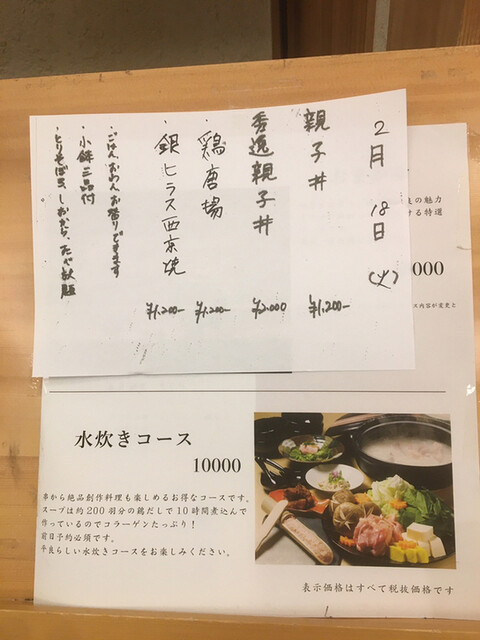 2月18日(火)
親子丼 ¥1,200-
秀逸親子丼 ¥2,000
・鶏唐揚 ¥1,200-
・銀ヒラス西京焼 ¥1,200-
ごはん、おわん お替りできます
・小鉢二品付
・とりそぼろ、しおから、たべ放題
良の魅力
ける特選
000
ス内容が変更と
水炊きコース
10000
串から絶品創作料理も楽しめるお得なコースです。
スープは約200羽分の鶏だしで10時間煮込んで
作っているのでコラーゲンたっぷり！
前日予約必須です。
平良らしい水炊きコースをお楽しみください。
表示価格はすべて税抜価格です